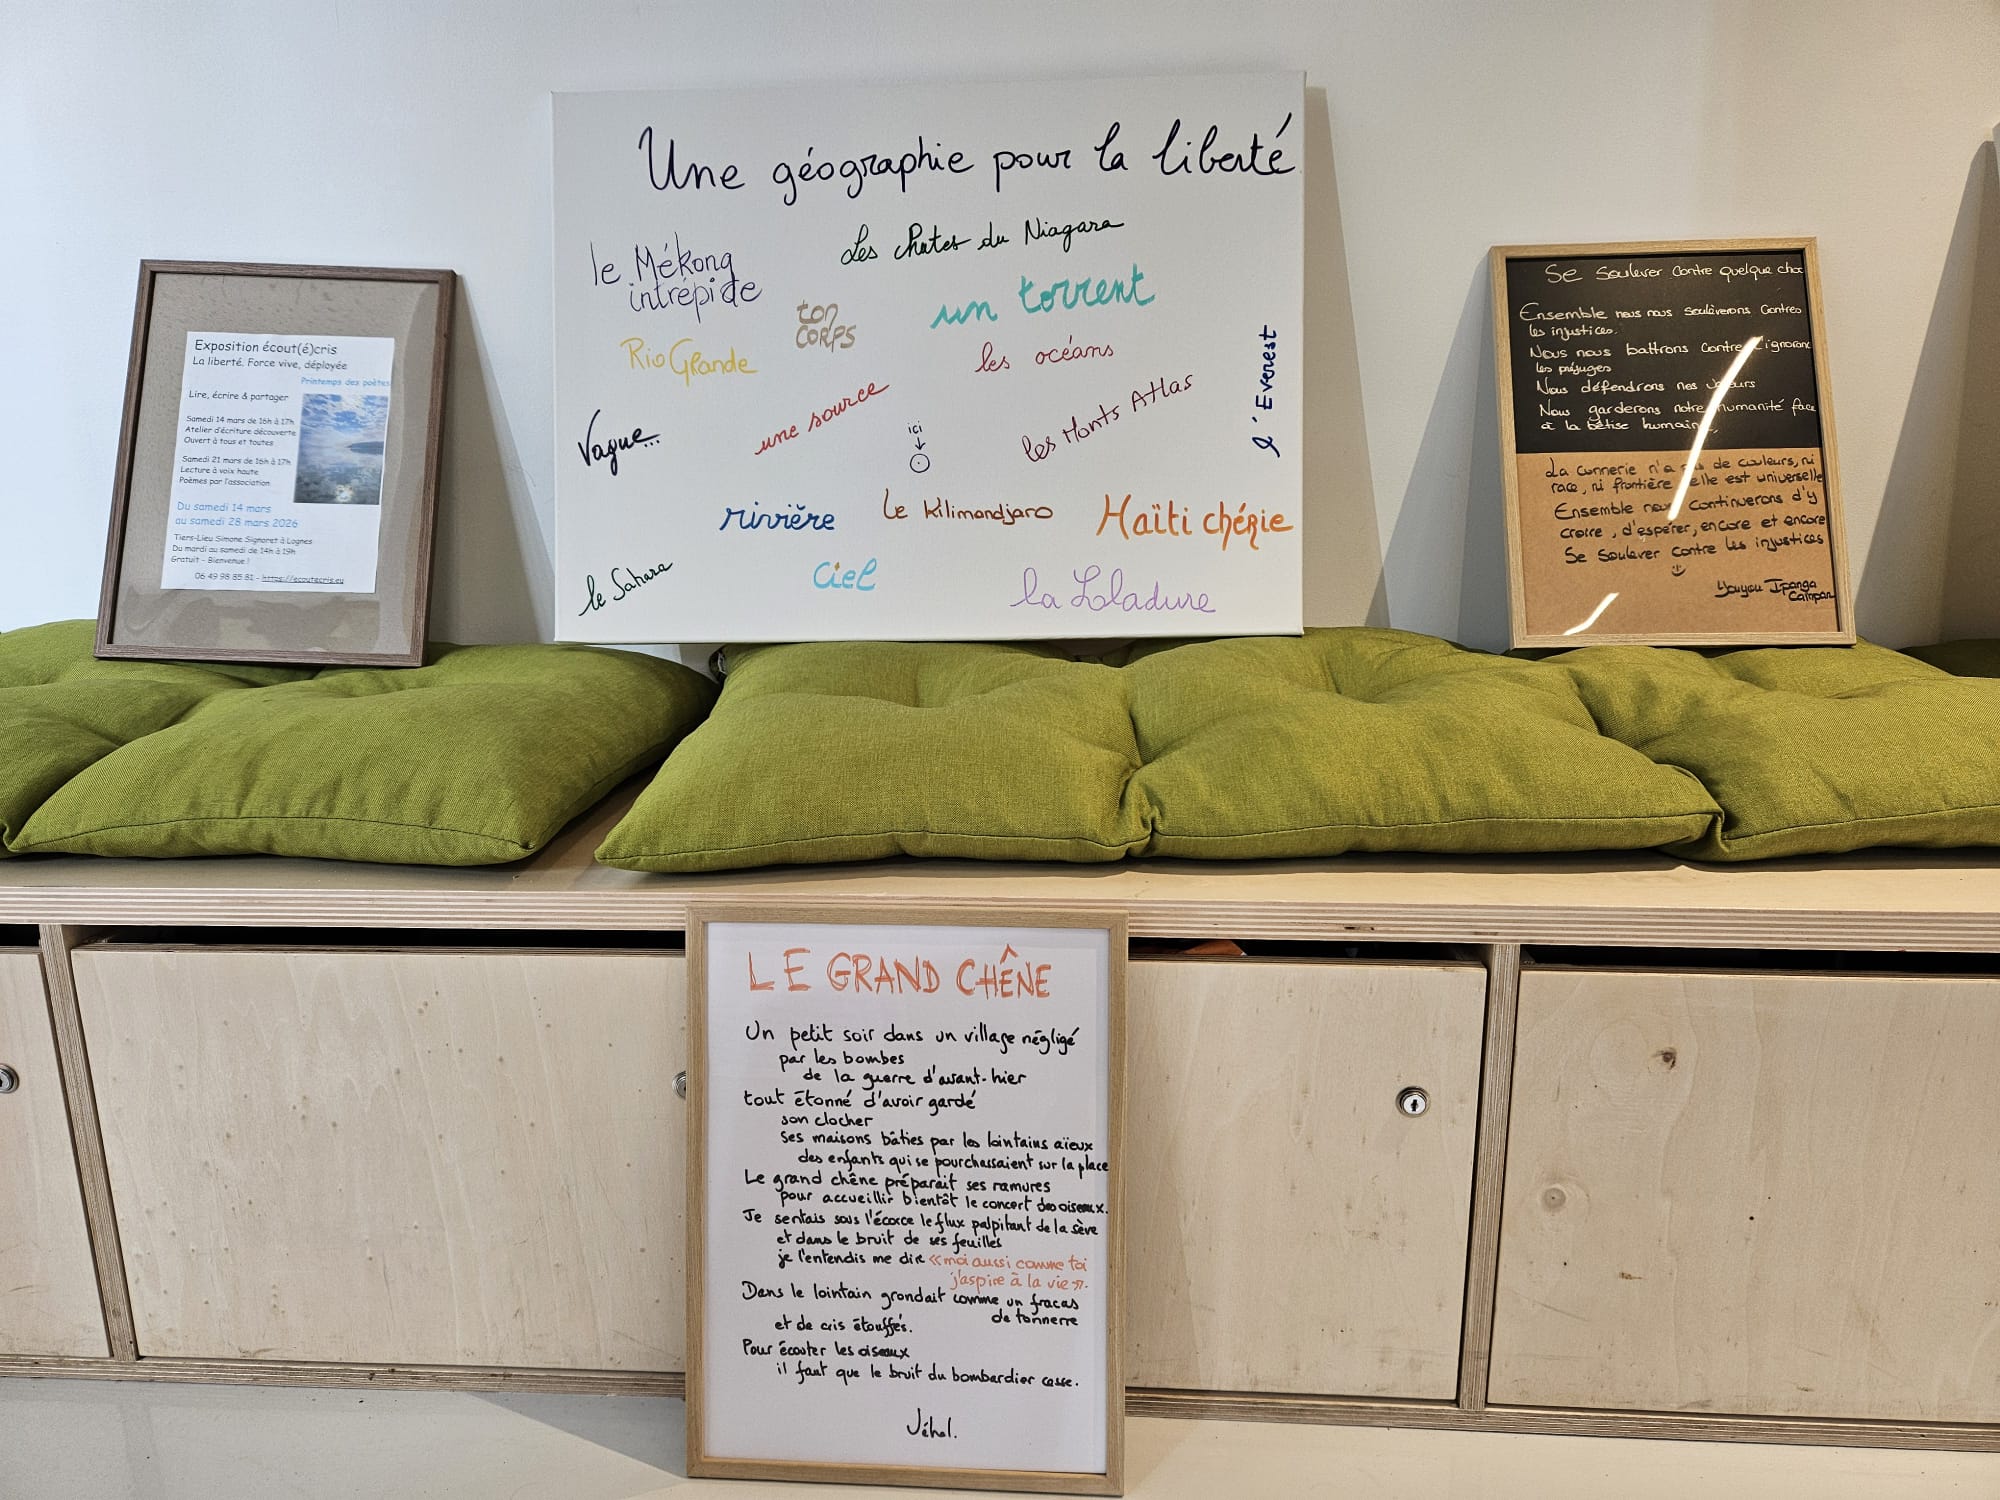 Exposition écout(é)cris
La liberté. Force vive, déployée
Printemps des poètes
Lire, écrire & partager
Samedi 14 mars de 16h à 17h
Atelier d'écriture découverte
Ouvert à tous et toutes
Samedi 21 mars de 16h à 17h
Lecture à voix haute
Poèmes par l'association
Du samedi 14 mars
au samedi 28 mars 2026
Tiers-Lieu Simone Signoret à Lognes
Du mardi au samedi de 14h à 19h
Gratuit - Bienvenue !
06 49 98 85 81 - https://ecoutecris.eu
Une géographie pour la liberté
le Mékong
intrépide
Les chutes du Niagara
ton
CORPS
un torrent
Rio Grande
les océans
l'Everest
Vague...
une source
ici
les Monts Atlas
rivière
Le Kilimandjaro
Haïti chérie
le Sahara
Ciel
la Loladure
Se soulever contre quelque cho
Ensemble nous nous soulèverons contres
les injustices.
Nous nous battrons contre l'ignoranc
les préjuges
Nous défendrons nos valeurs
Nous garderons notre humanité face
à la bêtise humaine,
La connerie n'a pas de couleurs, ni
race, ni frontière elle est universelle
Ensemble nous continuerons d'y
croire, d'espérer, encore et encore
Se soulever contre les injustices
Youyou Ipanga
LE GRAND CHÊNE
Un petit soir dans un village négligé
par les bombes
de la guerre d'avant-hier
tout étonné d'avoir gardé
son clocher
ses maisons bâties par les lointains aïeux
des enfants qui se pourchassaient sur la place
Le grand chêne préparait ses ramures
pour accueillir bientôt le concert des oiseaux.
Je sentais sous l'écorce le flux palpitant de la sève
et dans le bruit de ses feuilles
je l'entendis me dire «moi aussi comme toi
j'aspire à la vie».
Dans le lointain grondait comme un fracas
de tonnerre
et de cris étouffés.
Pour écouter les oiseaux
il faut que le bruit du bombardier cesse.
Jéhol.